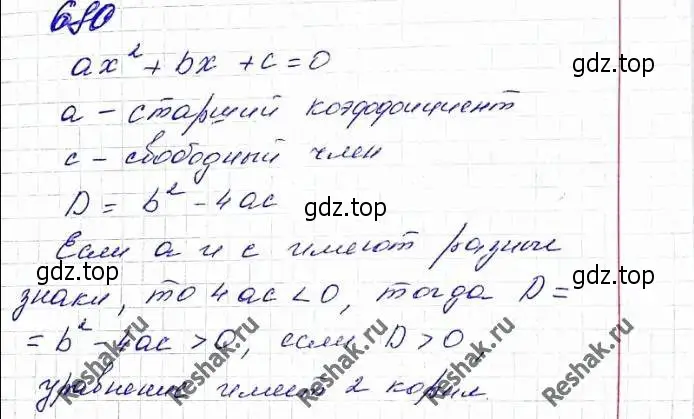 680
gdz.top
ax² + bx + c = 0
a – старший коэффициент
gdz.top
c – свободный член
D = b² – 4ac
gdz.top
Если a и c имеют разные
gdz.top
знаки, то 4ac < 0, тогда D =
= b² – 4ac > 0, если D > 0,
уравнение имеет 2 корня.
Reshak.ru
Reshak.ru
Reshak.ru
Reshak.ru